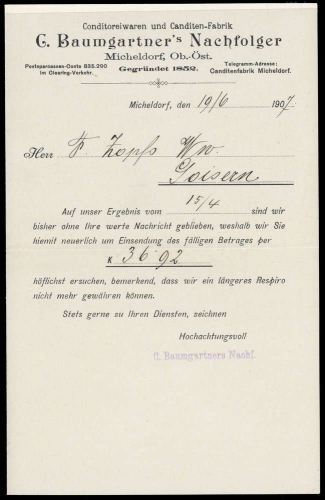 Conditoreiwaren und Canditen-Fabrik
C. Baumgartner's Nachfolger
Micheldorf, Ob.-Öst.
Postsparcassen-Conto 835.290
im Clearing-Verkehr.
Gegründet 1852.
Telegramm-Adresse:
Canditenfabrik Micheldorf.
Micheldorf, den 19/6 1907.
Herr F. Zopfs Ww
Goisern
Auf unser Ergebnis vom 15/4 sind wir
bisher ohne Ihre werte Nachricht geblieben, weshalb wir Sie
hiemit neuerlich um Einsendung des fälligen Betrages per
K 36.92
höflichst ersuchen, bemerkend, dass wir ein längeres Respiro
nicht mehr gewähren können.
Stets gerne zu Ihren Diensten, zeichnen
Hochachtungsvoll
C. Baumgartners Nachf.